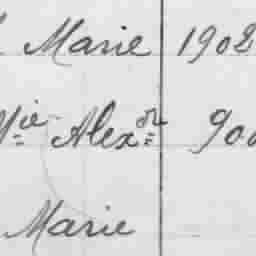 Marie 1902
Mie Alexdre 900
Marie